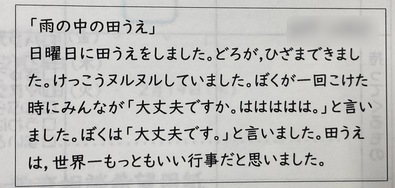 「雨の中の田うえ」
日曜日に田うえをしました。どろが,ひざまできまし
た。けっこうヌルヌルしていました。ぼくが一回こけた
時にみんなが「大丈夫ですか。ははははは。」と言い
ました。ぼくは「大丈夫です。」と言いました。田うえ
は,世界一もっともいい行事だと思いました。